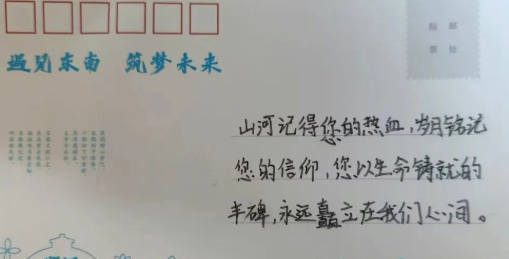 贴 邮
票 处
遇见东南 筑梦未来
山河记得您的热血,岁月铭记
您的信仰,您以生命铸就的
丰碑,永远矗立在我们心间。